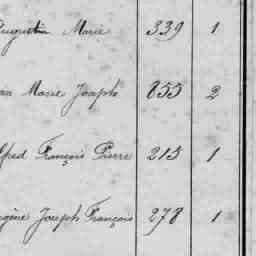 Augustin Marie 339 1
Jean Marie Joseph 855 2
Alfred François Pierre 215 1
Eugène Joseph François 278 1